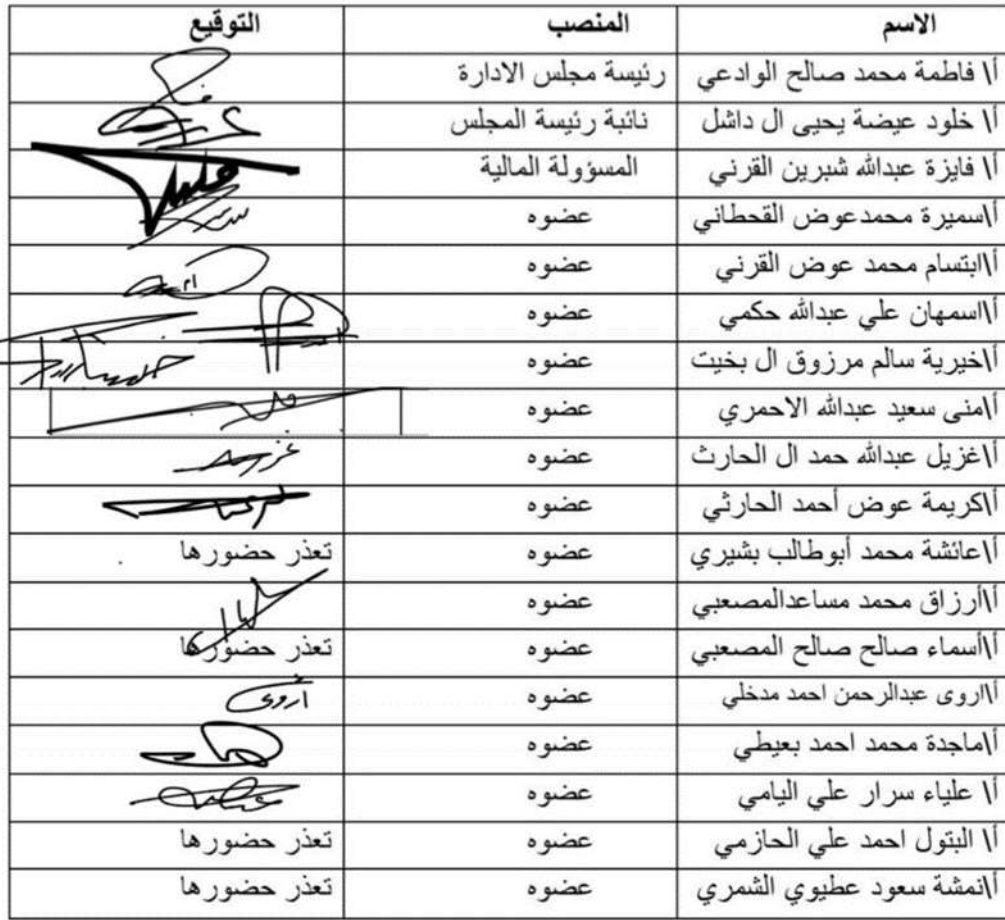 الاسم المنصب التوقيع
أ\ فاطمة محمد صالح الوادعي رئيسة مجلس الادارة
أ\ خلود عيضة يحيى ال داشل نائبة رئيسة المجلس
أ\ فايزة عبدالله شبرين القرني المسؤولة المالية
أ\سميرة محمدعوض القحطاني عضوه
أ\ابتسام محمد عوض القرني عضوه
أ\اسمهان علي عبدالله حكمي عضوه
أ\خيرية سالم مرزوق ال بخيت عضوه
أ\منى سعيد عبدالله الاحمري عضوه
أ\غزيل عبدالله حمد ال الحارث عضوه
أ\كريمة عوض أحمد الحارثي عضوه
أ\عائشة محمد أبوطالب بشيري عضوه تعذر حضورها
أ\أرزاق محمد مساعدالمصعبي عضوه
أ\أسماء صالح صالح المصعبي عضوه تعذر حضورها
أ\اروى عبدالرحمن احمد مدخلي عضوه أروى
أ\ماجدة محمد احمد بعيطي عضوه
أ\ علياء سرار علي اليامي عضوه
أ\ البتول احمد علي الحازمي عضوه تعذر حضورها
أ\نمشة سعود عطيوي الشمري عضوه تعذر حضورها